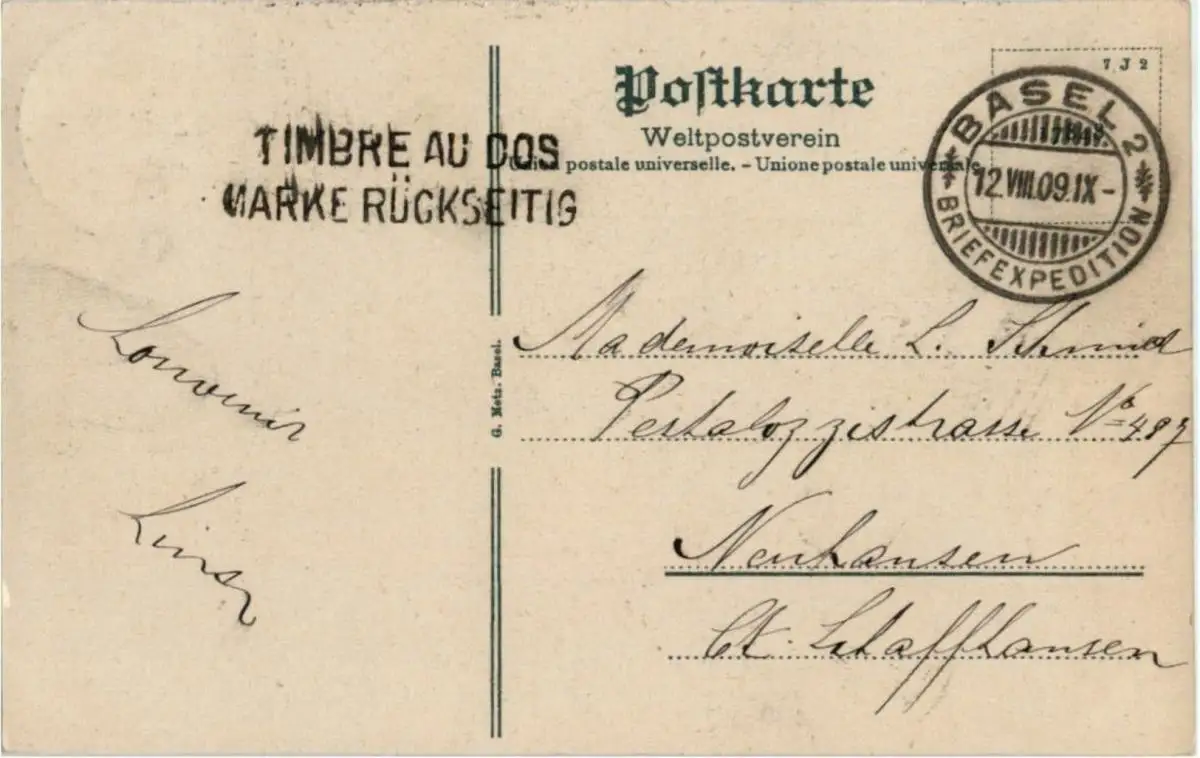 Postkarte
Weltpostverein
Union postale universelle. – Unione postale universale.
7 J 2
BASEL 2
12.VIII.09.IX-
BRIEFEXPEDITION
TIMBRE AU DOS
MARKE RÜCKSEITIG
Souvenir
G. Metz. Basel.
Mademoiselle L. Schmid
Pestalozzistrasse No 497
Neuhausen
Ct. Schaffhausen